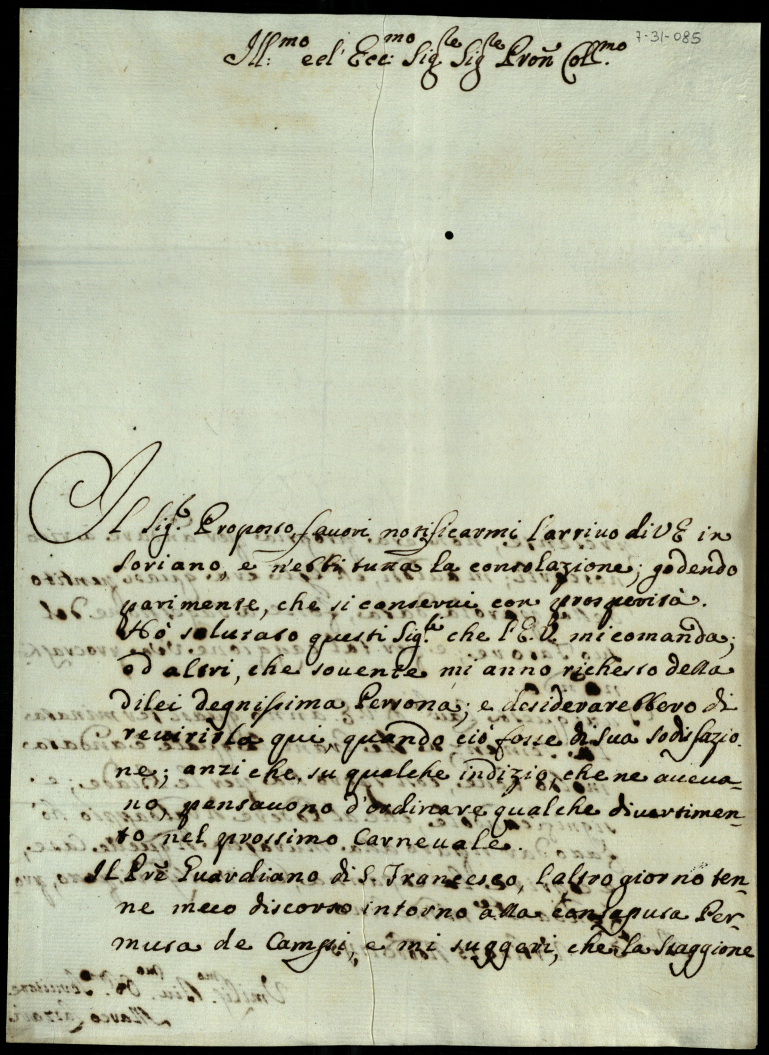 7-31-085
Ill:mo ed Ecc:mo Sigre Sigre Pron Coll.mo
Il Sigr Proposto favorì notificarmi l'arrivo di VE in
Soriano, e n'ebbi tutta la consolazione; godendo
parimente, che si conservi con prosperità.
Hò salutato questi Sigri che l'E.V. mi comanda;
ed altri, che sovente mi anno richesto della
dilei degnissima Persona; e desiderarebbero di
reverirla qui, quando ciò fosse di sua sodisfazio
ne; anzi che, su qualche indizio che ne aveva-
no pensavono d'ordinare qualche divertimen-
to nel prossimo Carnevale.
Il Prē Guardiano di S. Francesco, l'altro giorno ten-
ne meco discorso intorno alla consaputa Per-
muta de Campi, e mi suggerì, che la Staggione